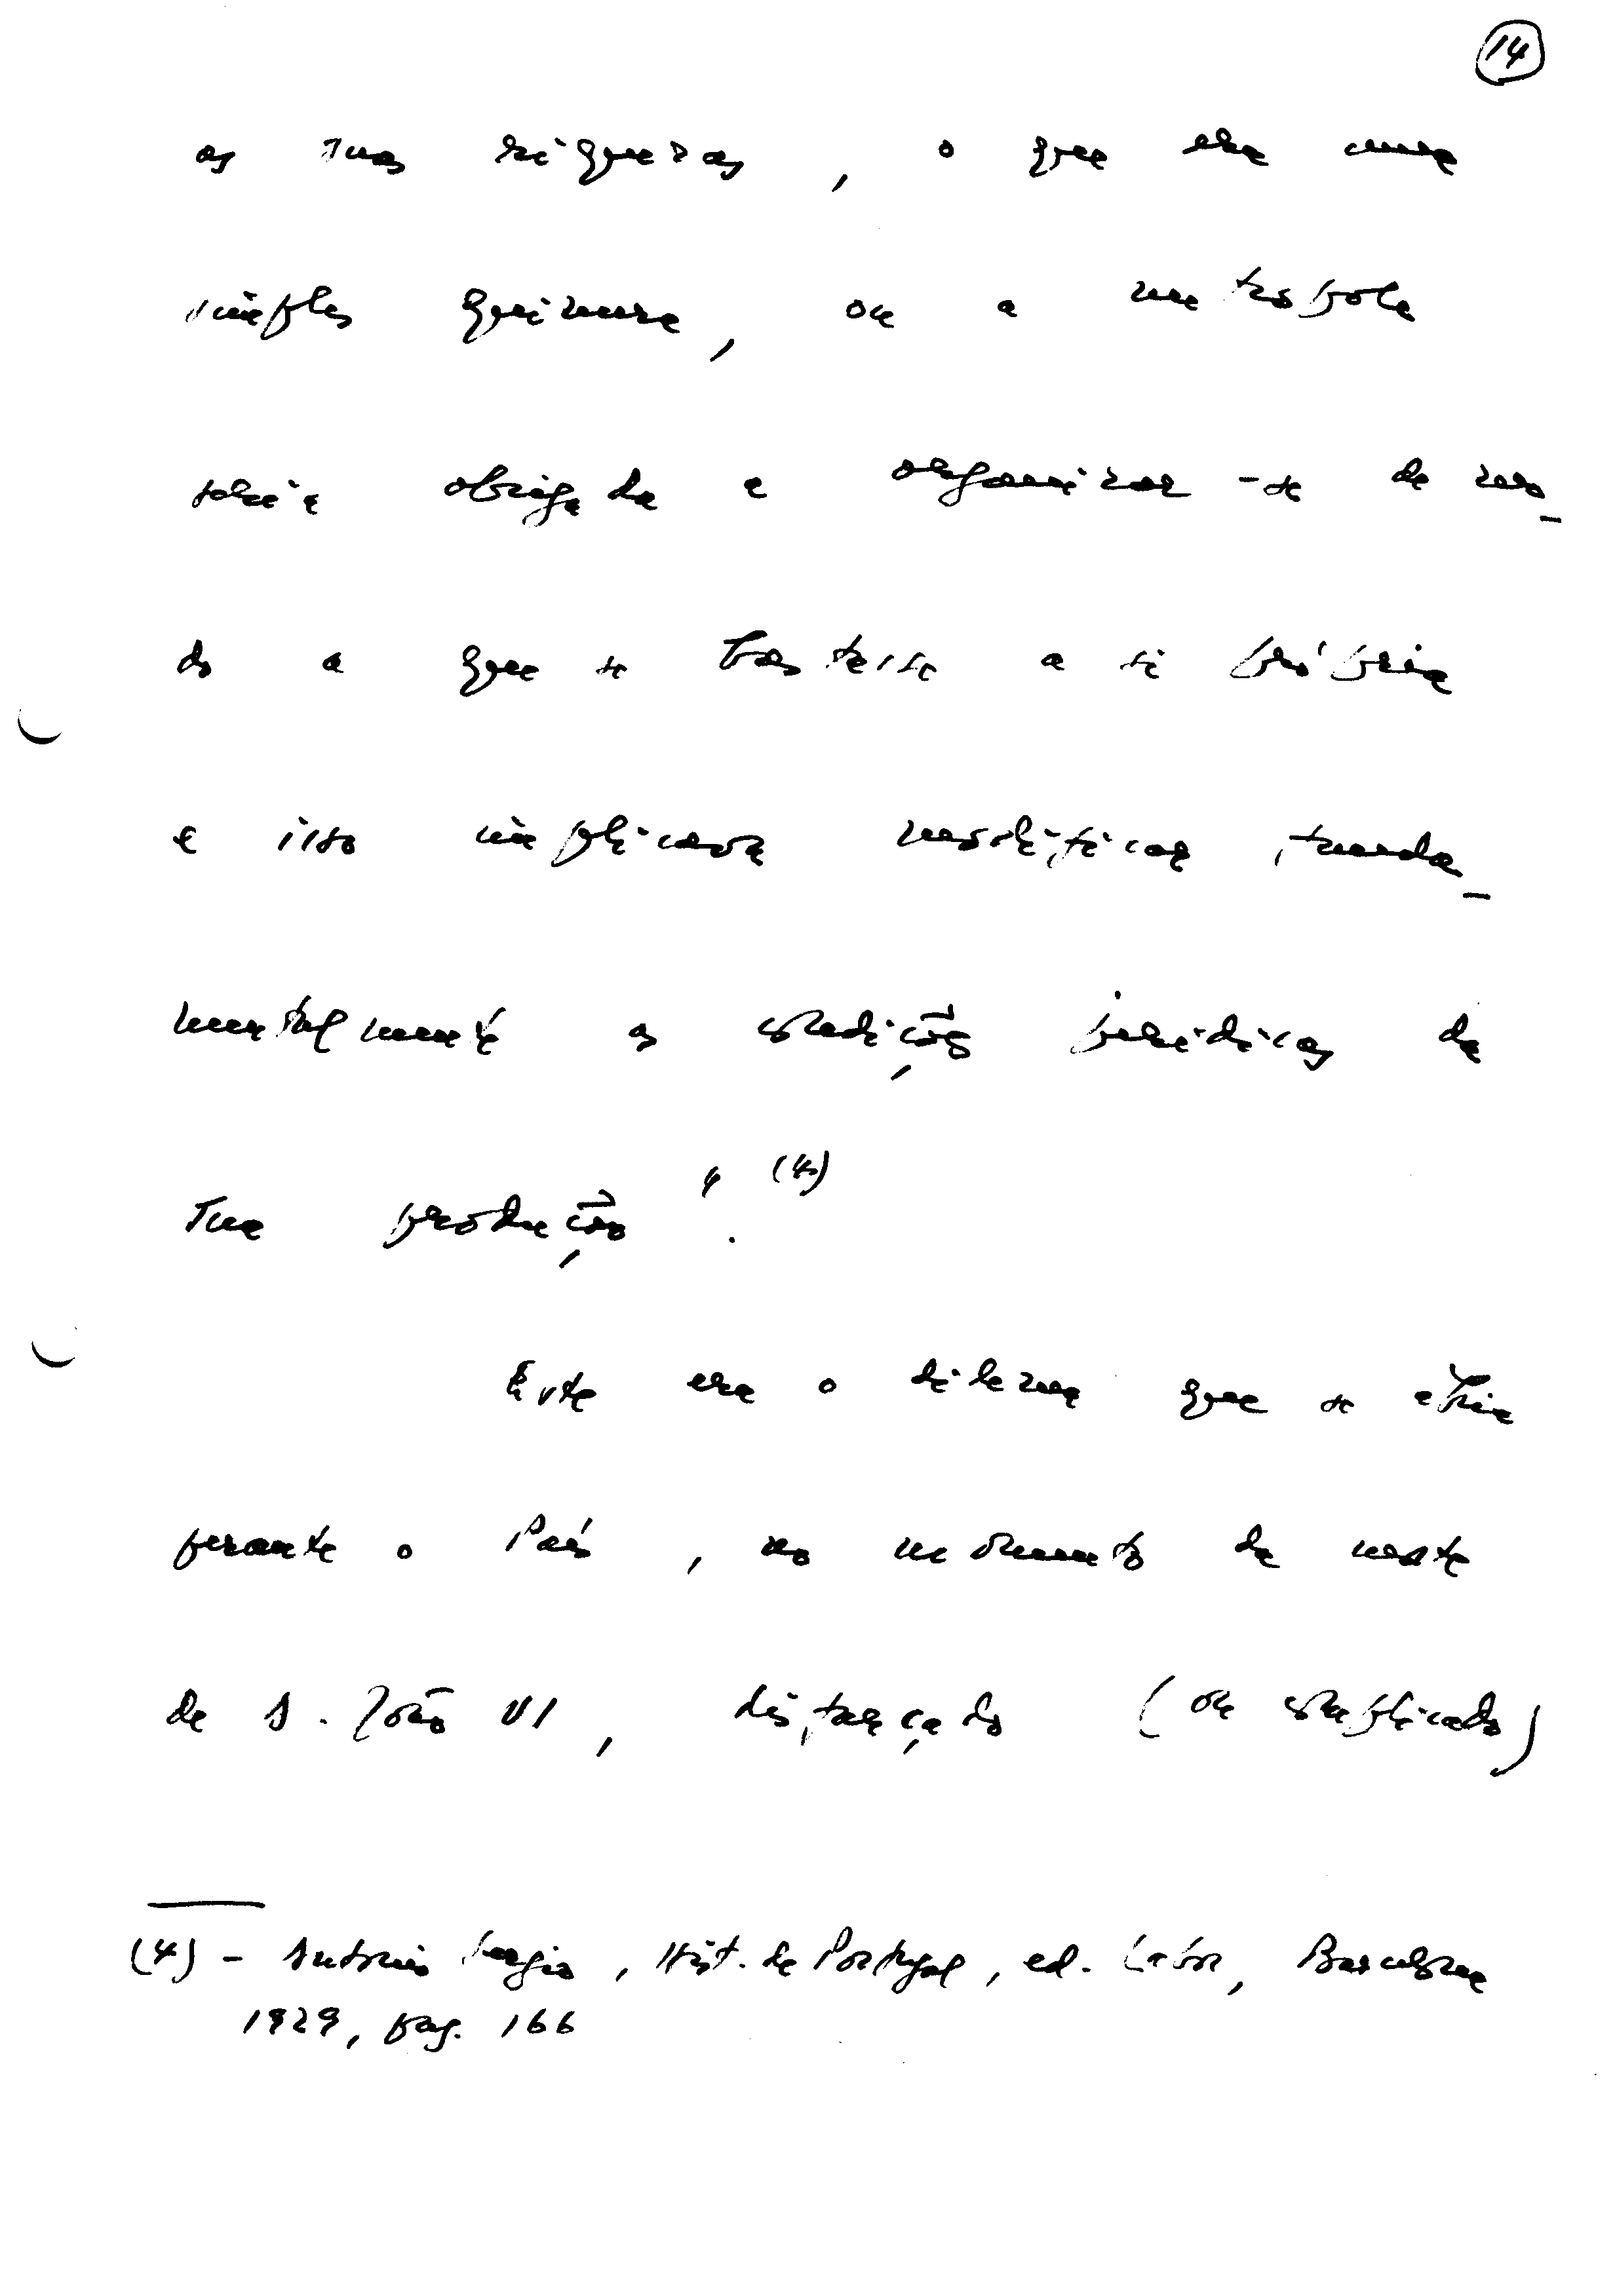 14
as suas riquezas, o que era uma
simples quimera, ou a metrópole
seria obrigada a organizar-se de mo-
do a que se bastasse a si própria
e isso implicava modificar funda-
mentalmente as condições jurídicas da
sua produção" (4).
Este era o dilema que se abria
perante o País, no momento da morte
de D. João VI, disfarçado (ou complicado)
(4) - António Sergio, Hist. de Portugal, ed. Labor, Barcelona
1929, pag. 166